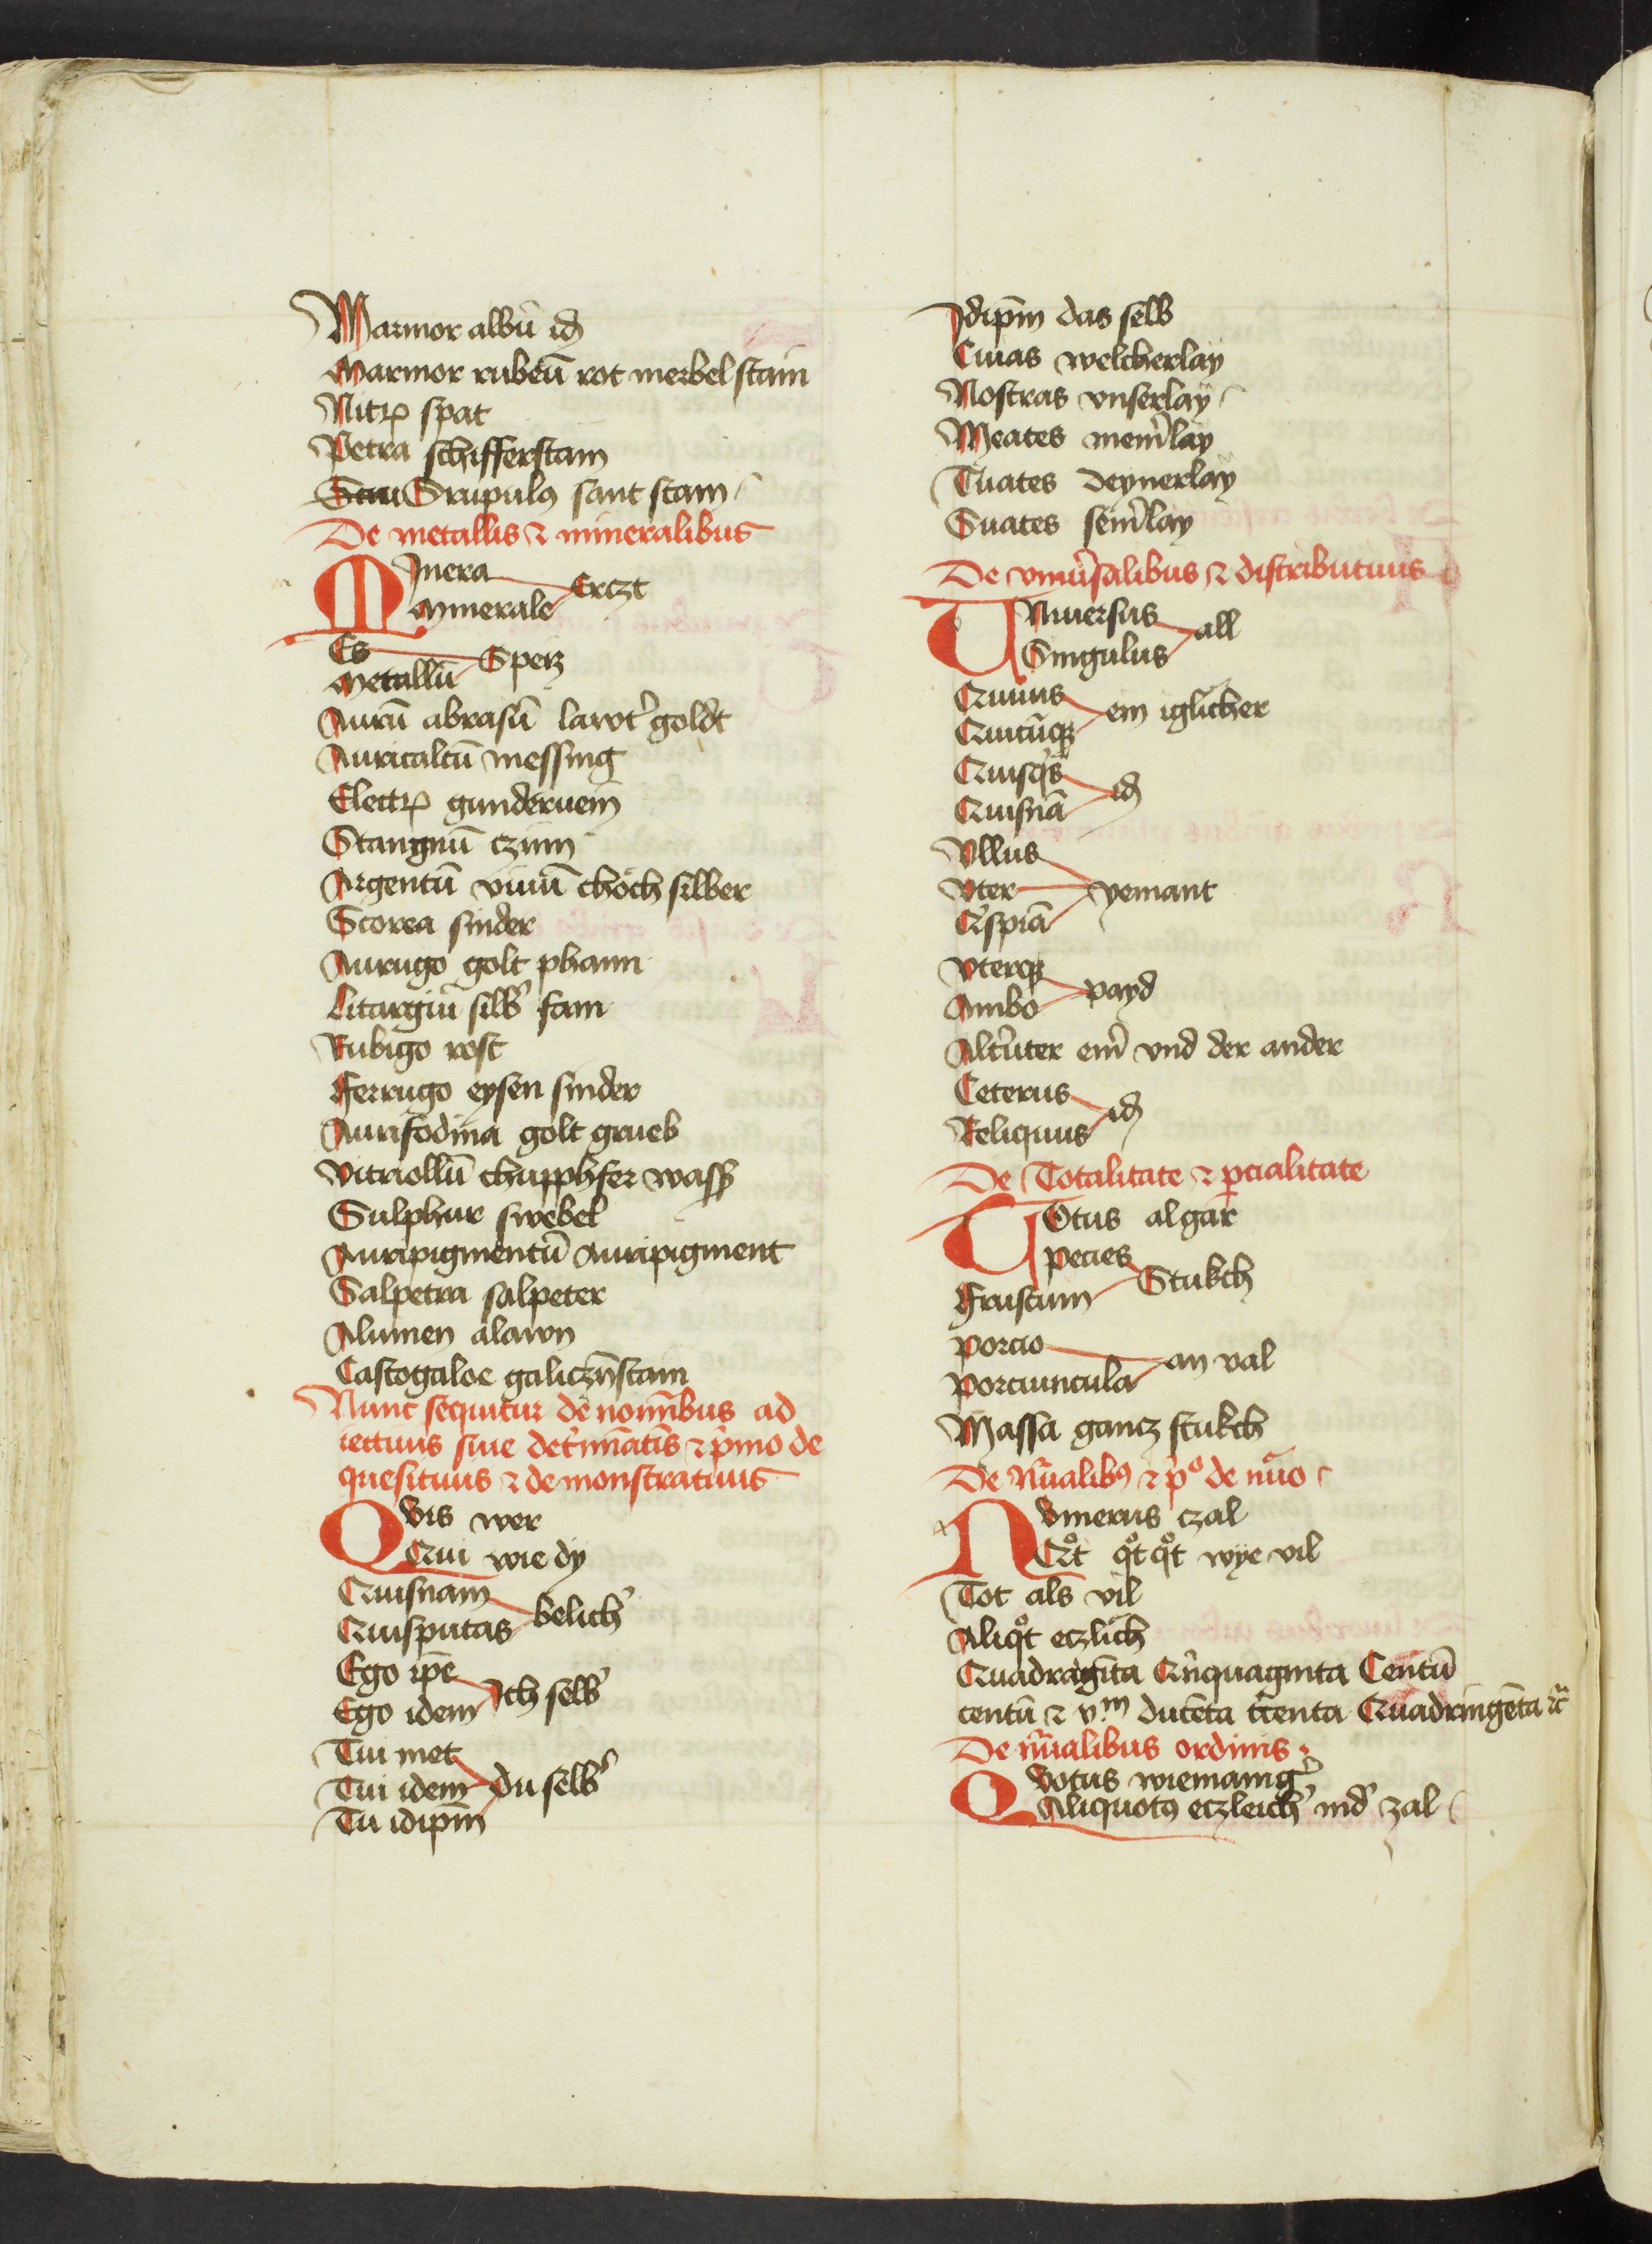 Marmor albū id
Marmor rubeū rot merbel stain
Nitrꝝ spat
Petra schifferstain
Stru Srupulꝯ sant stain
De metallis ⁊ mineralibus
MInera
Erczt
Minerale
Es
Speis
Metallū
Aurū abrasū lawt' goldt
Auricalcū messing
Electrꝝ gunderuein
Stangnū czinn
Argentū viuū choch silber
Scorea sinder
Aurugo golt phann
Litargiū silb' fam
Rubigo rost
Ferrugo eysen sinder
Aurifodina golt grueb
Vitriollū chupphfer wass
Sulphur swebel
Auripigmentū Auripigment
Salpetra salpeter
Alumen alawn
Castogaloe galiczn̄stain
Nunc sequitur de nomībus ad
iectiuis siue det'mīatis ⁊ p'mo de
quesitiuis ⁊ demonstratiuis
QVis wer
Qui wie dy
Quisnam
belich'
Quisputas
Ego ip̄e
Ich selb'
Ego idem
Tui met
Tui idem
du selb'
Tu idip̄m
Idip̄m das selb
Cuias welcherlay
Nostras vnserlay
Meates mein'lay
Tuates deynerlay
Suates sein'lay
De vniu'salibus ⁊ distributiuis
VNiuersus
all
Singulus
Quiuis
ein iglicher
Quicūqꝫ
Quisq's
id
Quisnā
Vllus
Vter
yemant
Q'spiā
Vterqꝫ
payd
Ambo
Alt'uter ein' vnd der ander
Ceterus
id
Reliquus
De Totalitate ⁊ ꝑcialitate
TOtus algar
Pecies
Stukch
Frustum
Porcio
an val
Porciuncula
Massa gancz stukch
De Nūalibꝯ ⁊ p'º de nūo
NVmerus czal
Qͦt qͦt qͦt wye vil
Tot als vil
Aliqͦt eczlich
Quadraginta Qīnquaginta Centū
centū ⁊ v.m ducēta t'centa Quadringēta ⁊c̄
De nūalibus ordinis
QVotus wiemainig'
Aliquotꝯ eczleich' ind' zal